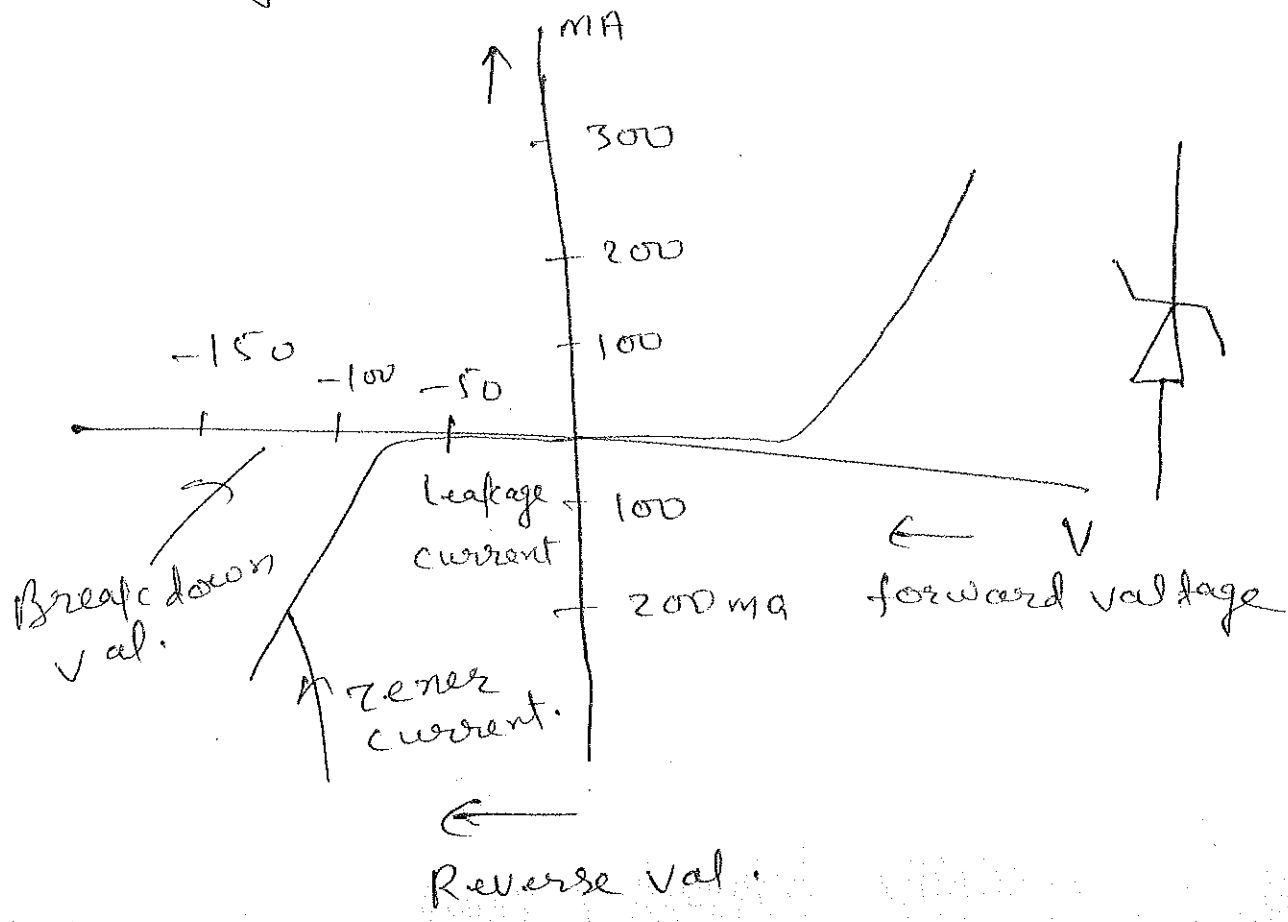 MA
300
200
100
-150
-100
-50
Leakage
current
100
200 ma
V
forward valtage
Breakdown
val.
zener
current.
Reverse val.